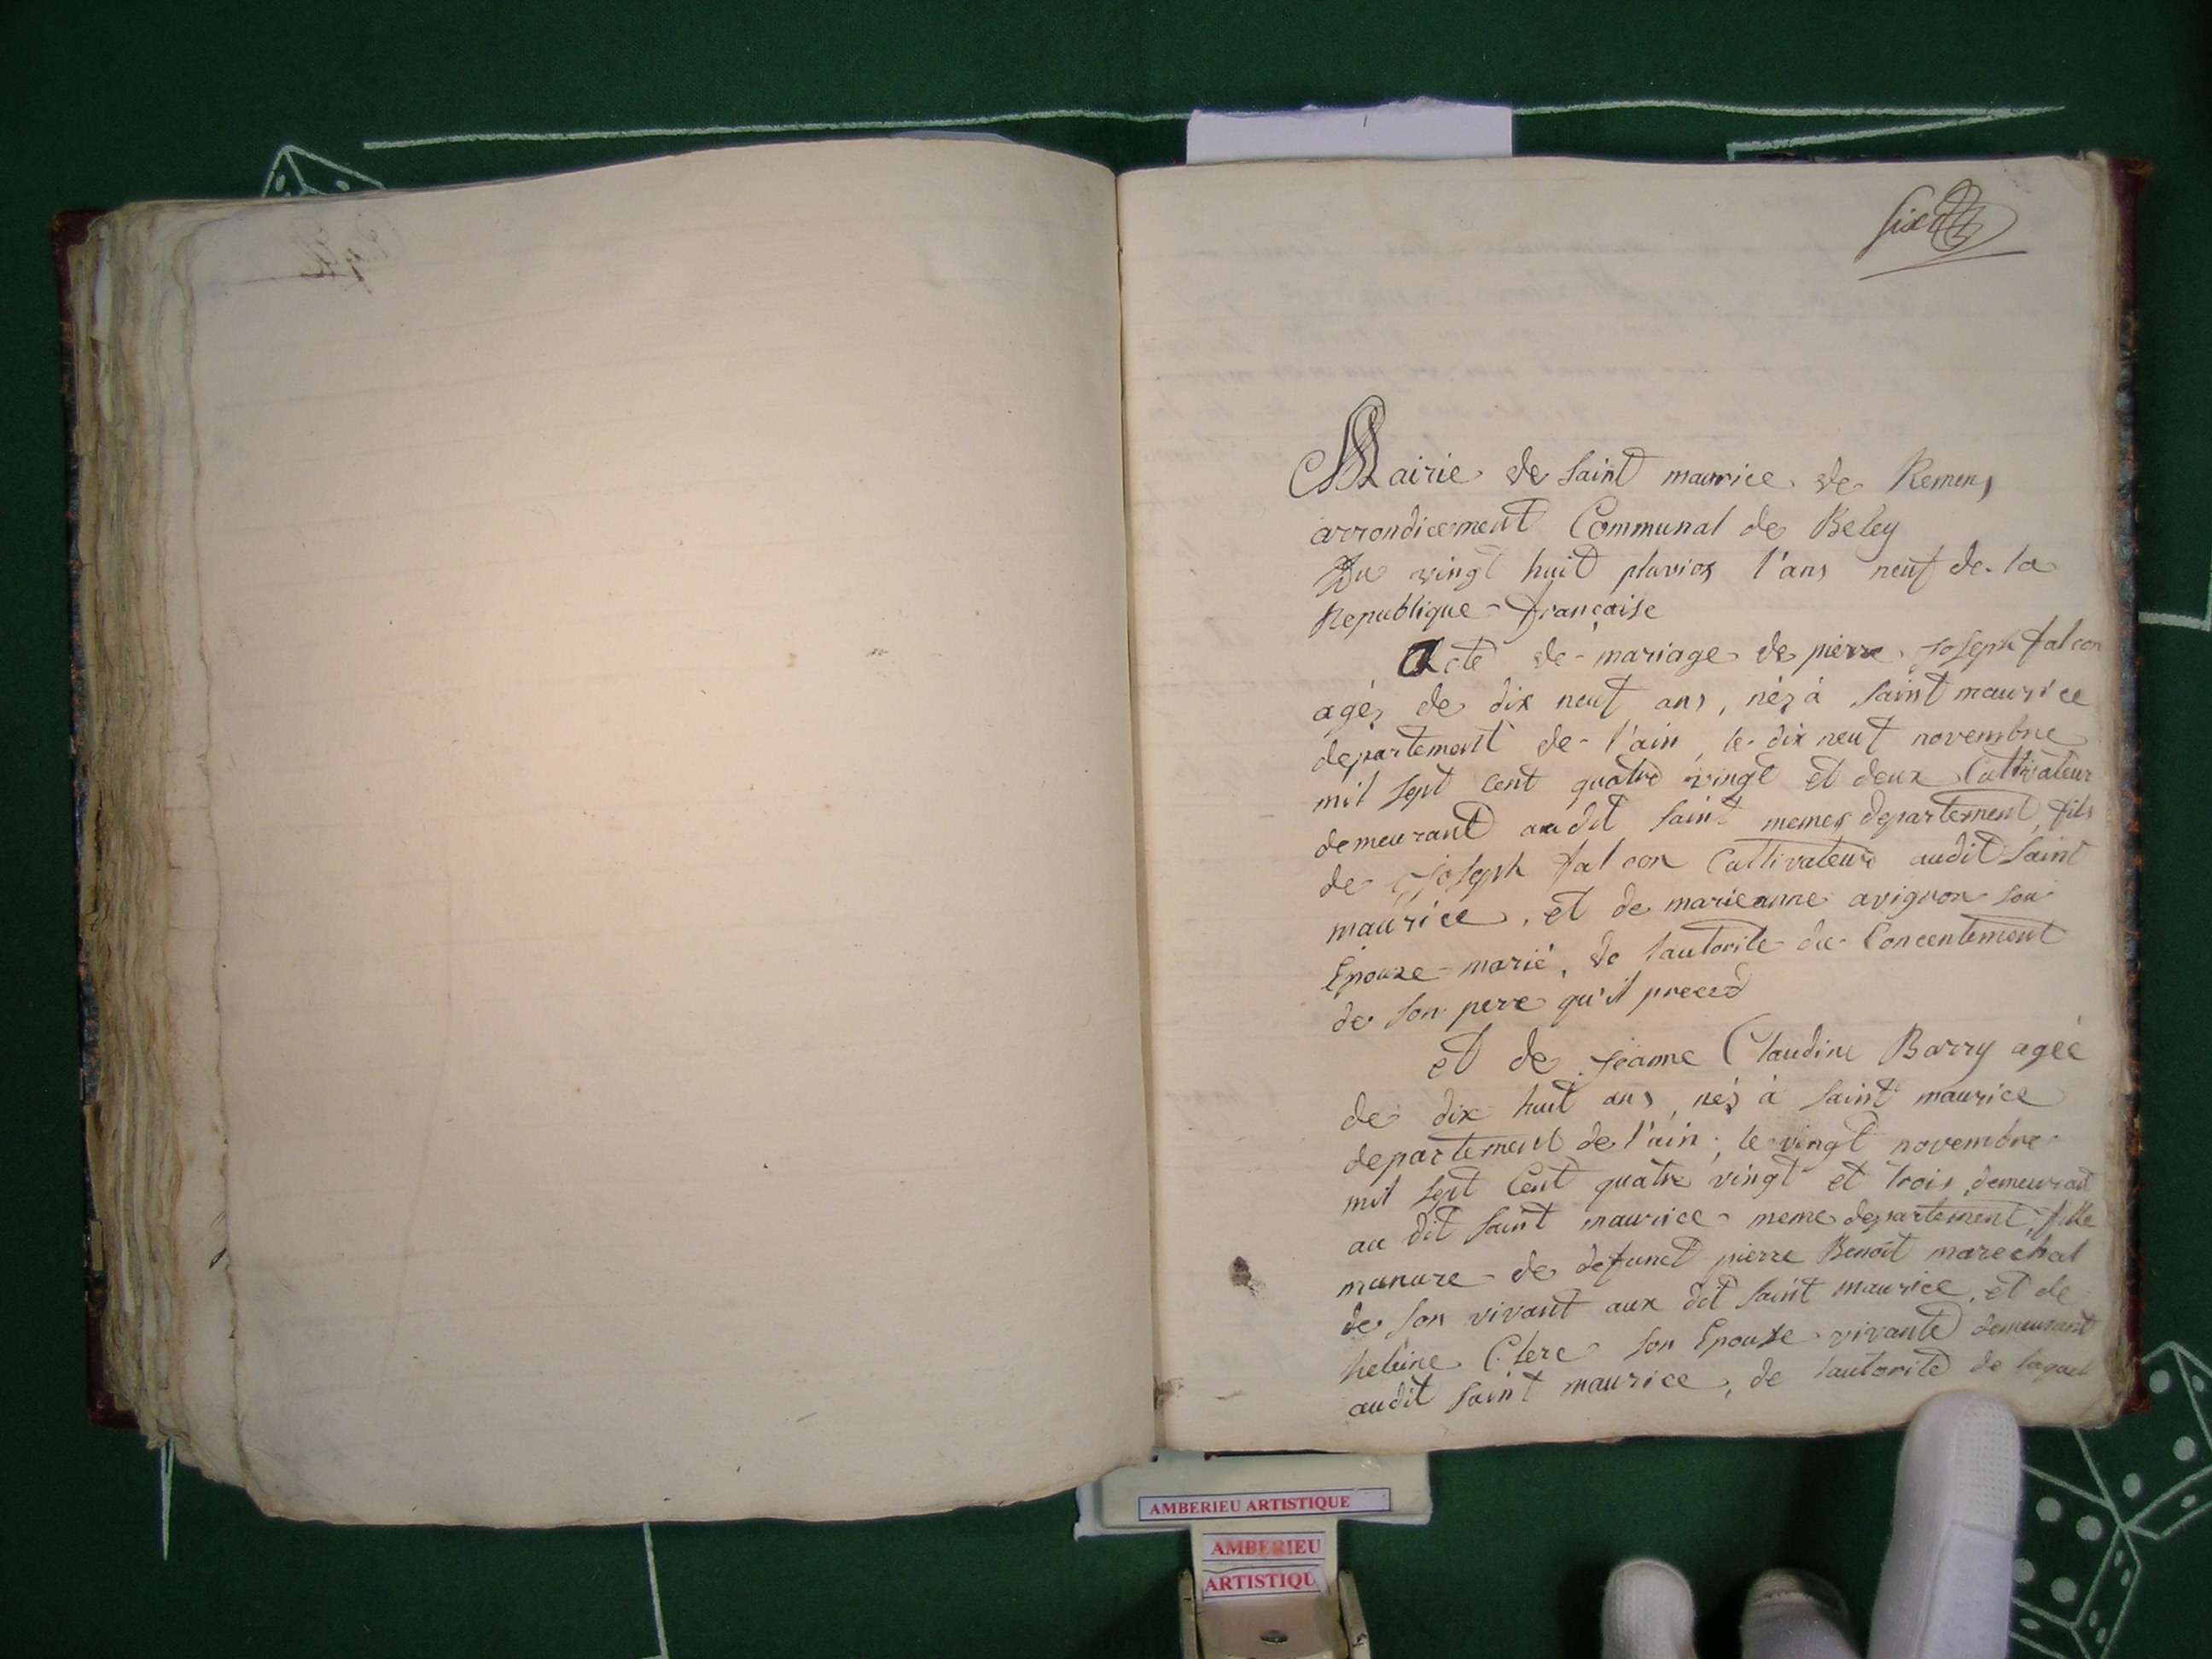 six
Mairie de saint maurice de Remens
arrondicement Communal de Beley
Du vingt huit pluvios l'ans neuf de la
Republique française
Acte de mariage de pierre joseph falcon
agéz de dix neuf ans, néz à saint maurice
département de l'ain, le dix neuf novembre
mil sept cent quatre vingt et deux Cultivateur
demeurant au dit saint memes departement, fils
de joseph falcon Cultivateur audit saint
maurice, et de marieanne avignon son
Epouze marié, de lautorite du Concentement
de son pere qu'il preced
et de jeanne Claudine Barry agéé
de dix huit ans, néz à saint maurice
departement de l'ain, le vingt novembre
mil sept Cent quatre vingt et trois, demeurant
au dit saint maurice meme departement, fille
manure de defunct pierre Benoit marechal
de son vivant aux dit saint maurice, et de
heleine Clerc son Epouze vivante demeurant
audit saint maurice, de lautorité de laquel
AMBERIEU ARTISTIQUE
AMBERIEU
ARTISTIQU